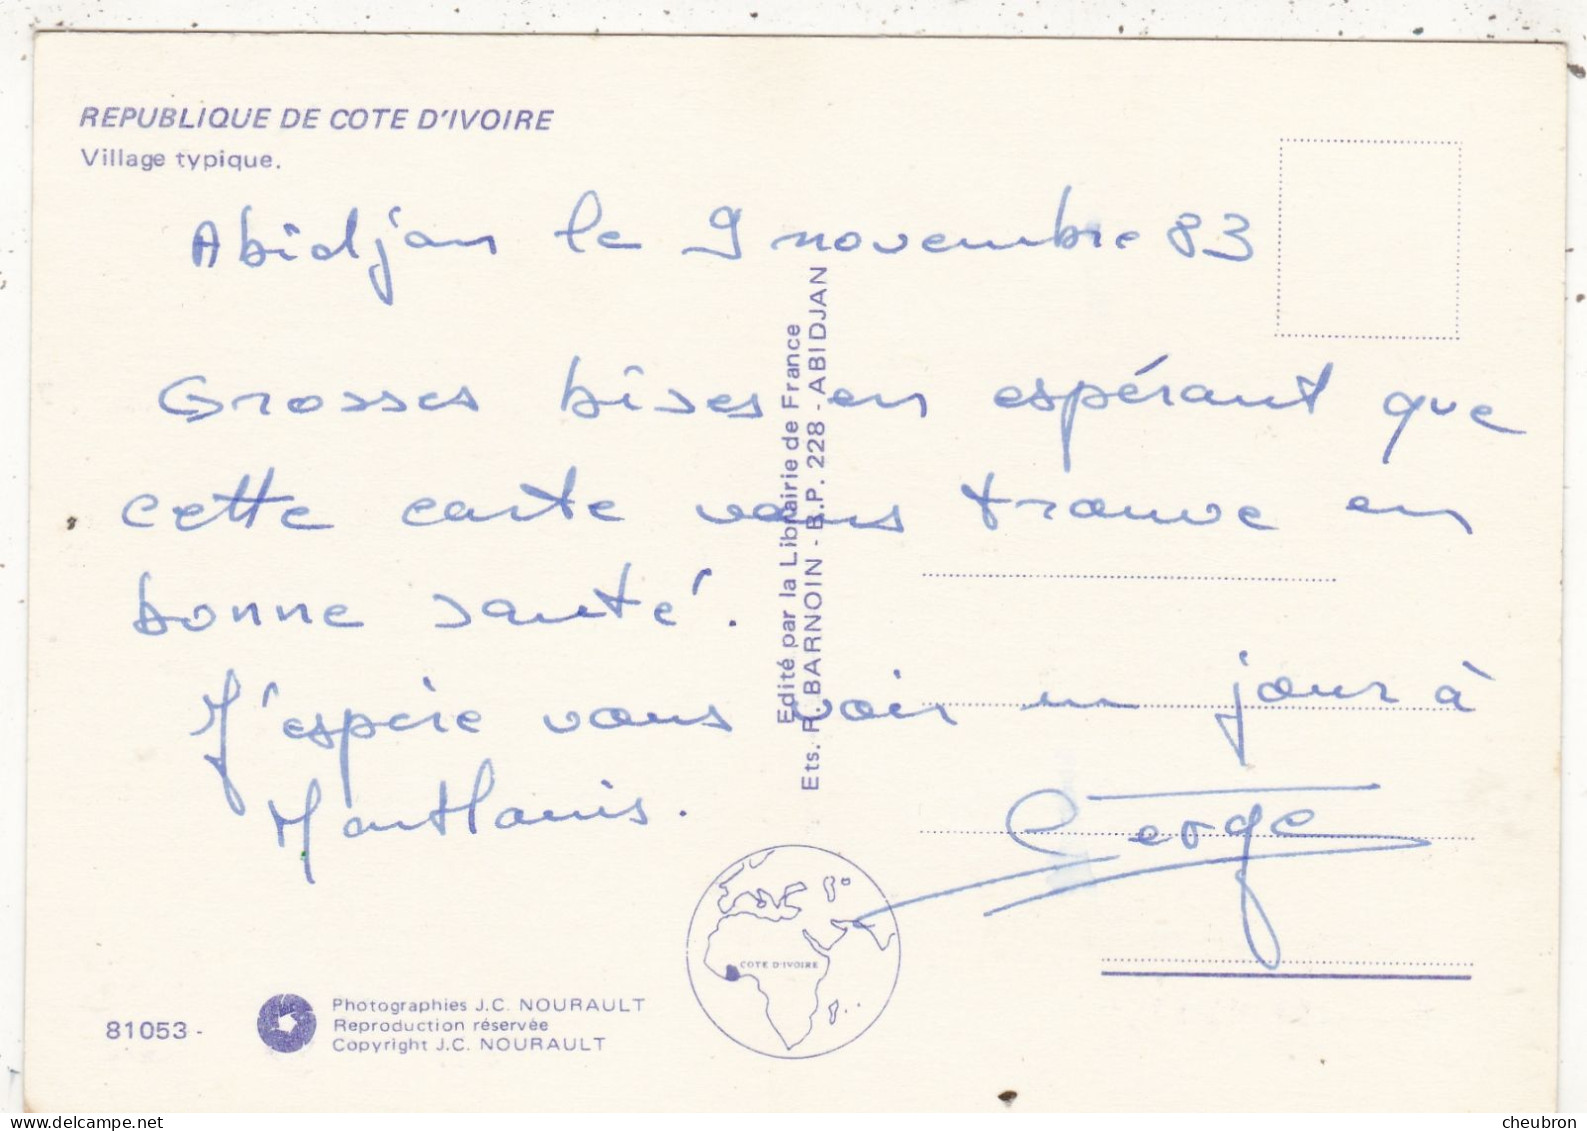 REPUBLIQUE DE COTE D'IVOIRE
Village typique.
Abidjan le 9 novembre 83
Grosses bises en espérant que
cette carte vous trouve en
bonne santé.
J'espère vous voir un jour à
Serge
Edité par la Librairie de France
Ets. R. BARNOIN - B.P. 228 - ABIDJAN
COTE D'IVOIRE
81053 -
Photographies J.C. NOURAULT
Reproduction réservée
Copyright J.C. NOURAULT
cheubron